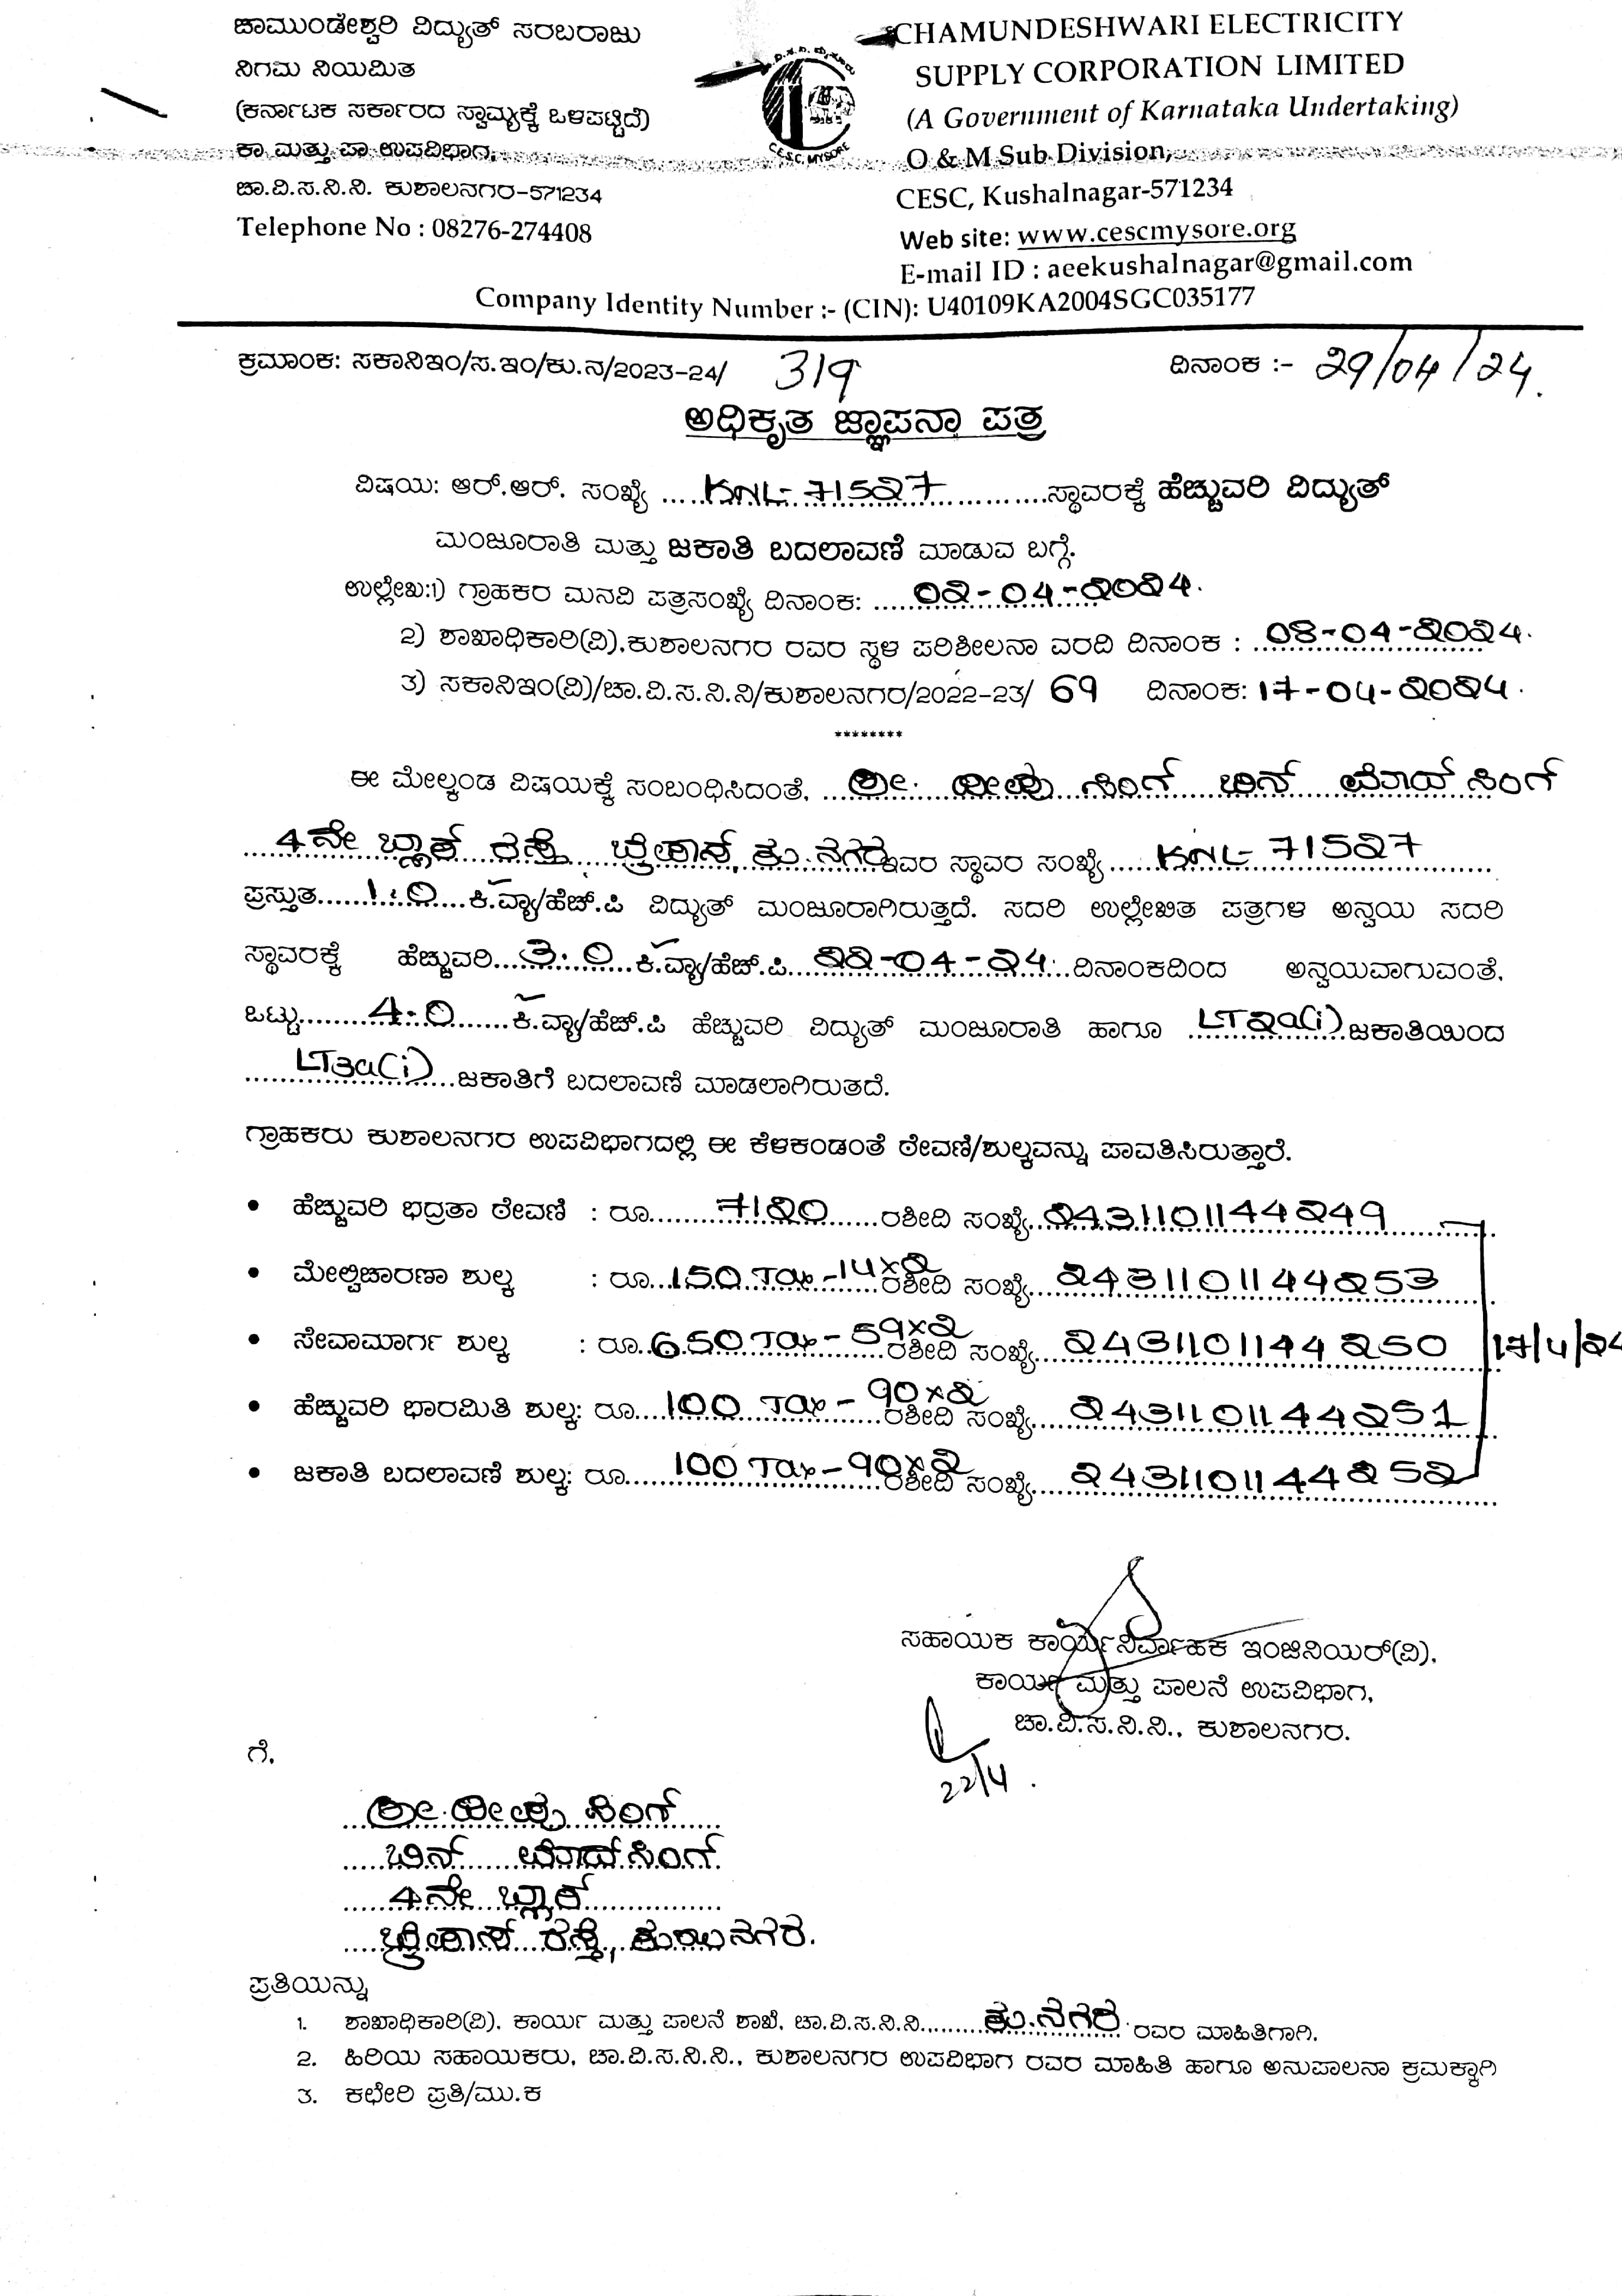 ಚಾಮುಂಡೇಶ್ವರಿ ವಿದ್ಯುತ್ ಸರಬರಾಜು
ನಿಗಮ ನಿಯಮಿತ
(ಕರ್ನಾಟಕ ಸರ್ಕಾರದ ಸ್ವಾಮ್ಯಕ್ಕೆ ಒಳಪಟ್ಟಿದೆ)
ಕಾ ಮತ್ತು ಪಾ ಉಪವಿಭಾಗ,
ಚಾ.ವಿ.ಸ.ನಿ.ನಿ. ಕುಶಾಲನಗರ-571234
Telephone No : 08276-274408
C.E.S.C. MYSORE
CHAMUNDESHWARI ELECTRICITY
SUPPLY CORPORATION LIMITED
(A Government of Karnataka Undertaking)
O & M Sub Division,
CESC, Kushalnagar-571234
Web site: www.cescmysore.org
E-mail ID : aeekushalnagar@gmail.com
Company Identity Number :- (CIN): U40109KA2004SGC035177
ಕ್ರಮಾಂಕ: ಸಕಾನಿಇಂ/ಸ.ಇಂ/ಕು.ನ/2023-24/ 319 ದಿನಾಂಕ :- 29/04/24.
ಅಧಿಕೃತ ಜ್ಞಾಪನಾ ಪತ್ರ
ವಿಷಯ: ಆರ್.ಆರ್. ಸಂಖ್ಯೆ .....KNL-71527...........ಸ್ಥಾವರಕ್ಕೆ ಹೆಚ್ಚುವರಿ ವಿದ್ಯುತ್
ಮಂಜೂರಾತಿ ಮತ್ತು ಜಕಾತಿ ಬದಲಾವಣೆ ಮಾಡುವ ಬಗ್ಗೆ.
ಉಲ್ಲೇಖ:1) ಗ್ರಾಹಕರ ಮನವಿ ಪತ್ರಸಂಖ್ಯೆ ದಿನಾಂಕ: .....02-04-2024.
೨) ಶಾಖಾಧಿಕಾರಿ(ವಿ).ಕುಶಾಲನಗರ ರವರ ಸ್ಥಳ ಪರಿಶೀಲನಾ ವರದಿ ದಿನಾಂಕ : 03-04-2024.
೩) ಸಕಾನಿಇಂ(ವಿ)/ಚಾ.ವಿ.ಸ.ನಿ.ನಿ/ಕುಶಾಲನಗರ/2022-23/ 69 ದಿನಾಂಕ: 17-04-2024.
********
ಈ ಮೇಲ್ಕಂಡ ವಿಷಯಕ್ಕೆ ಸಂಬಂಧಿಸಿದಂತೆ, ...ಶ್ರೀ. ಸಿಂಗ್ ಬಿನ್ ಸಿಂಗ್
4ನೇ ಬ್ಲಾಕ್ ರಸ್ತೆ ಕು.ನಗರ ಇವರ ಸ್ಥಾವರ ಸಂಖ್ಯೆ.....KNL-71527
ಪ್ರಸ್ತುತ.....1.0....ಕಿ.ವ್ಯಾ/ಹೆಚ್.ಪಿ ವಿದ್ಯುತ್ ಮಂಜೂರಾಗಿರುತ್ತದೆ. ಸದರಿ ಉಲ್ಲೇಖಿತ ಪತ್ರಗಳ ಅನ್ವಯ ಸದರಿ
ಸ್ಥಾವರಕ್ಕೆ ಹೆಚ್ಚುವರಿ...3.0...ಕಿ.ವ್ಯಾ/ಹೆಚ್.ಪಿ...22-04-24...ದಿನಾಂಕದಿಂದ ಅನ್ವಯವಾಗುವಂತೆ,
ಒಟ್ಟು.........4.0.......ಕಿ.ವ್ಯಾ/ಹೆಚ್.ಪಿ ಹೆಚ್ಚುವರಿ ವಿದ್ಯುತ್ ಮಂಜೂರಾತಿ ಹಾಗೂ ..LT2a(i).ಜಕಾತಿಯಿಂದ
......LT3a(i)....ಜಕಾತಿಗೆ ಬದಲಾವಣೆ ಮಾಡಲಾಗಿರುತದೆ.
ಗ್ರಾಹಕರು ಕುಶಾಲನಗರ ಉಪವಿಭಾಗದಲ್ಲಿ ಈ ಕೆಳಕಂಡಂತೆ ಠೇವಣಿ/ಶುಲ್ಕವನ್ನು ಪಾವತಿಸಿರುತ್ತಾರೆ.
• ಹೆಚ್ಚುವರಿ ಭದ್ರತಾ ಠೇವಣಿ : ರೂ.........7120......ರಶೀದಿ ಸಂಖ್ಯೆ..2431101144249
• ಮೇಲ್ವಿಚಾರಣಾ ಶುಲ್ಕ : ರೂ...150 Tax-14x2 ರಶೀದಿ ಸಂಖ್ಯೆ....2431101144253
• ಸೇವಾಮಾರ್ಗ ಶುಲ್ಕ : ರೂ..650 Tax-59x2 ರಶೀದಿ ಸಂಖ್ಯೆ....2431101144250 17/4/24
• ಹೆಚ್ಚುವರಿ ಭಾರಮಿತಿ ಶುಲ್ಕ: ರೂ....100 Tax-90x2 ರಶೀದಿ ಸಂಖ್ಯೆ....2431101144251
• ಜಕಾತಿ ಬದಲಾವಣೆ ಶುಲ್ಕ: ರೂ......100 Tax-90x2 ರಶೀದಿ ಸಂಖ್ಯೆ....2431101144252
ಸಹಾಯಕ ಕಾರ್ಯನಿರ್ವಾಹಕ ಇಂಜಿನಿಯರ್(ವಿ),
ಕಾರ್ಯ ಮತ್ತು ಪಾಲನೆ ಉಪವಿಭಾಗ,
ಚಾ.ವಿ.ಸ.ನಿ.ನಿ., ಕುಶಾಲನಗರ.
22/4.
ಗೆ,
ಶ್ರೀ. ಸಿಂಗ್
ಬಿನ್ ಸಿಂಗ್
4ನೇ ಬ್ಲಾಕ್
ರಸ್ತೆ,
ಪ್ರತಿಯನ್ನು
1. ಶಾಖಾಧಿಕಾರಿ(ವಿ). ಕಾರ್ಯ ಮತ್ತು ಪಾಲನೆ ಶಾಖೆ, ಚಾ.ವಿ.ಸ.ನಿ.ನಿ.........ಕು.ನಗರ ರವರ ಮಾಹಿತಿಗಾಗಿ.
2. ಹಿರಿಯ ಸಹಾಯಕರು, ಚಾ.ವಿ.ಸ.ನಿ.ನಿ., ಕುಶಾಲನಗರ ಉಪವಿಭಾಗ ರವರ ಮಾಹಿತಿ ಹಾಗೂ ಅನುಪಾಲನಾ ಕ್ರಮಕ್ಕಾಗಿ
3. ಕಛೇರಿ ಪ್ರತಿ/ಮು.ಕ